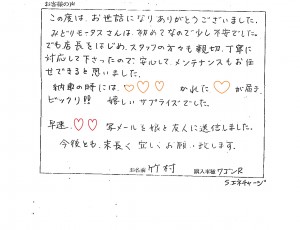 お客様の声
この度は、お世話になりありがとうございました。
みどりモータスさんは、初めてなので少し不安でした。
でも店長をはじめ、スタッフの方々も親切、丁寧に
対応して下さったので、安心して、メンテナンスもお任
せできると思いました。
納車の時には、♡♡♡ かれた ♡ が届き、
ビックリ!! 嬉しいサプライズでした。
早速、♡♡ 写メールを娘と友人に送信しました。
今後とも、末長く宜しくお願い致します。
お名前 竹村 購入車種 ワゴンR
Sエネチャージ